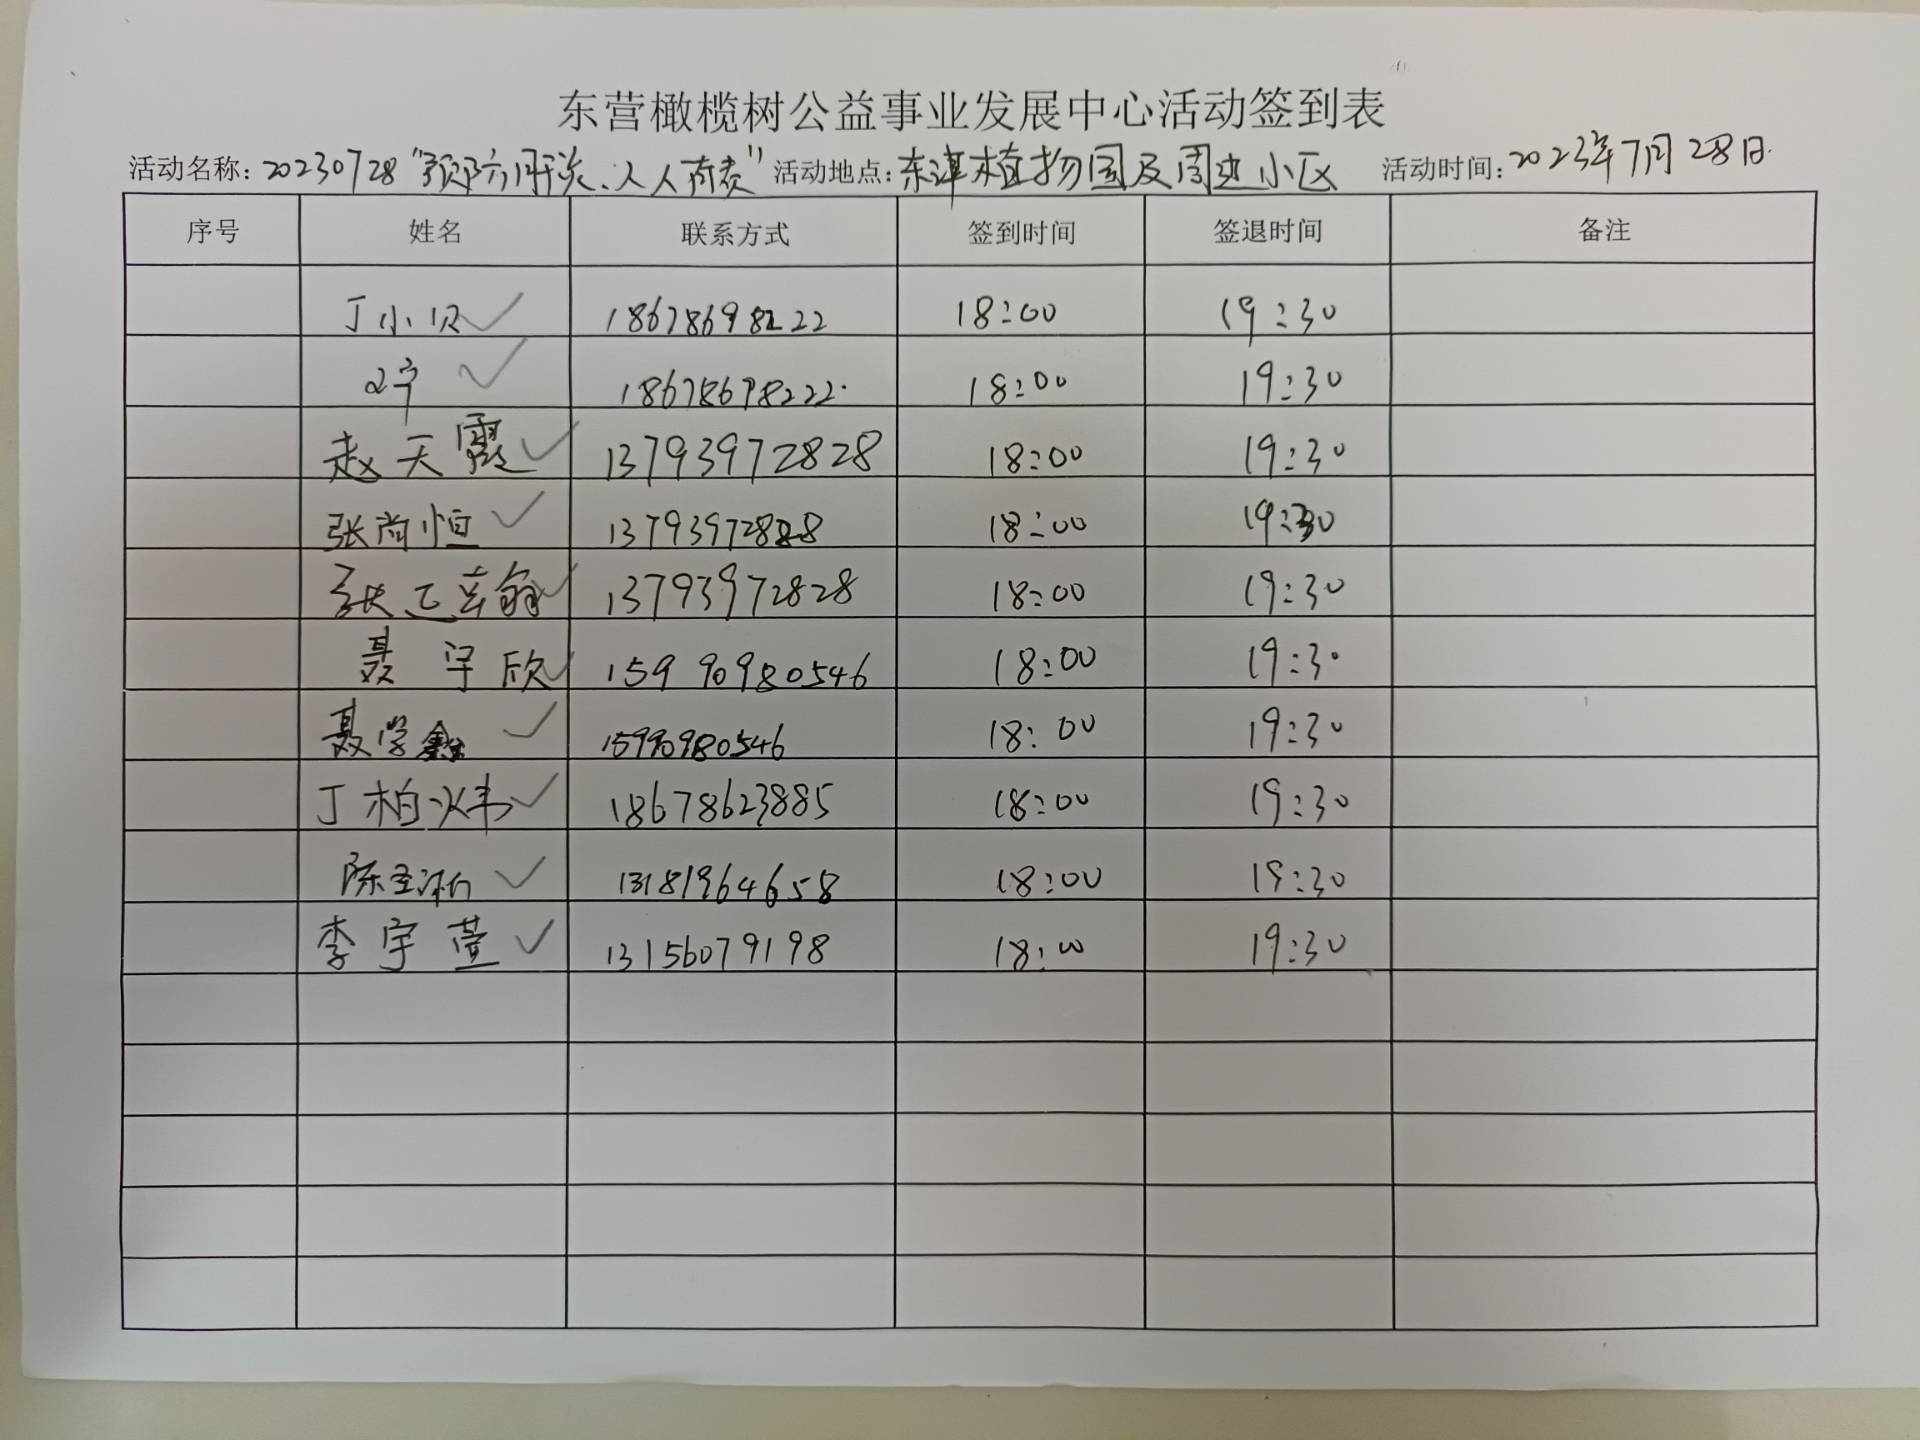 东营橄榄树公益事业发展中心活动签到表
活动名称：20230728“预防肝炎、人人有责” 活动地点：东津植物园及周边小区 活动时间：2023年7月28日
序号 姓名 联系方式 签到时间 签退时间 备注
丁小贝 18678698222 18:00 19:30
宁 18678698222 18:00 19:30
赵天霞 13793972828 18:00 19:30
张尚恒 13793972828 18:00 19:30
张 13793972828 18:00 19:30
聂宇欣 15990980546 18:00 19:30
聂学鑫 15990980546 18:00 19:30
丁柏炜 18678623885 18:00 19:30
陈 13181964658 18:00 19:30
李宇萱 13156079198 18:00 19:30